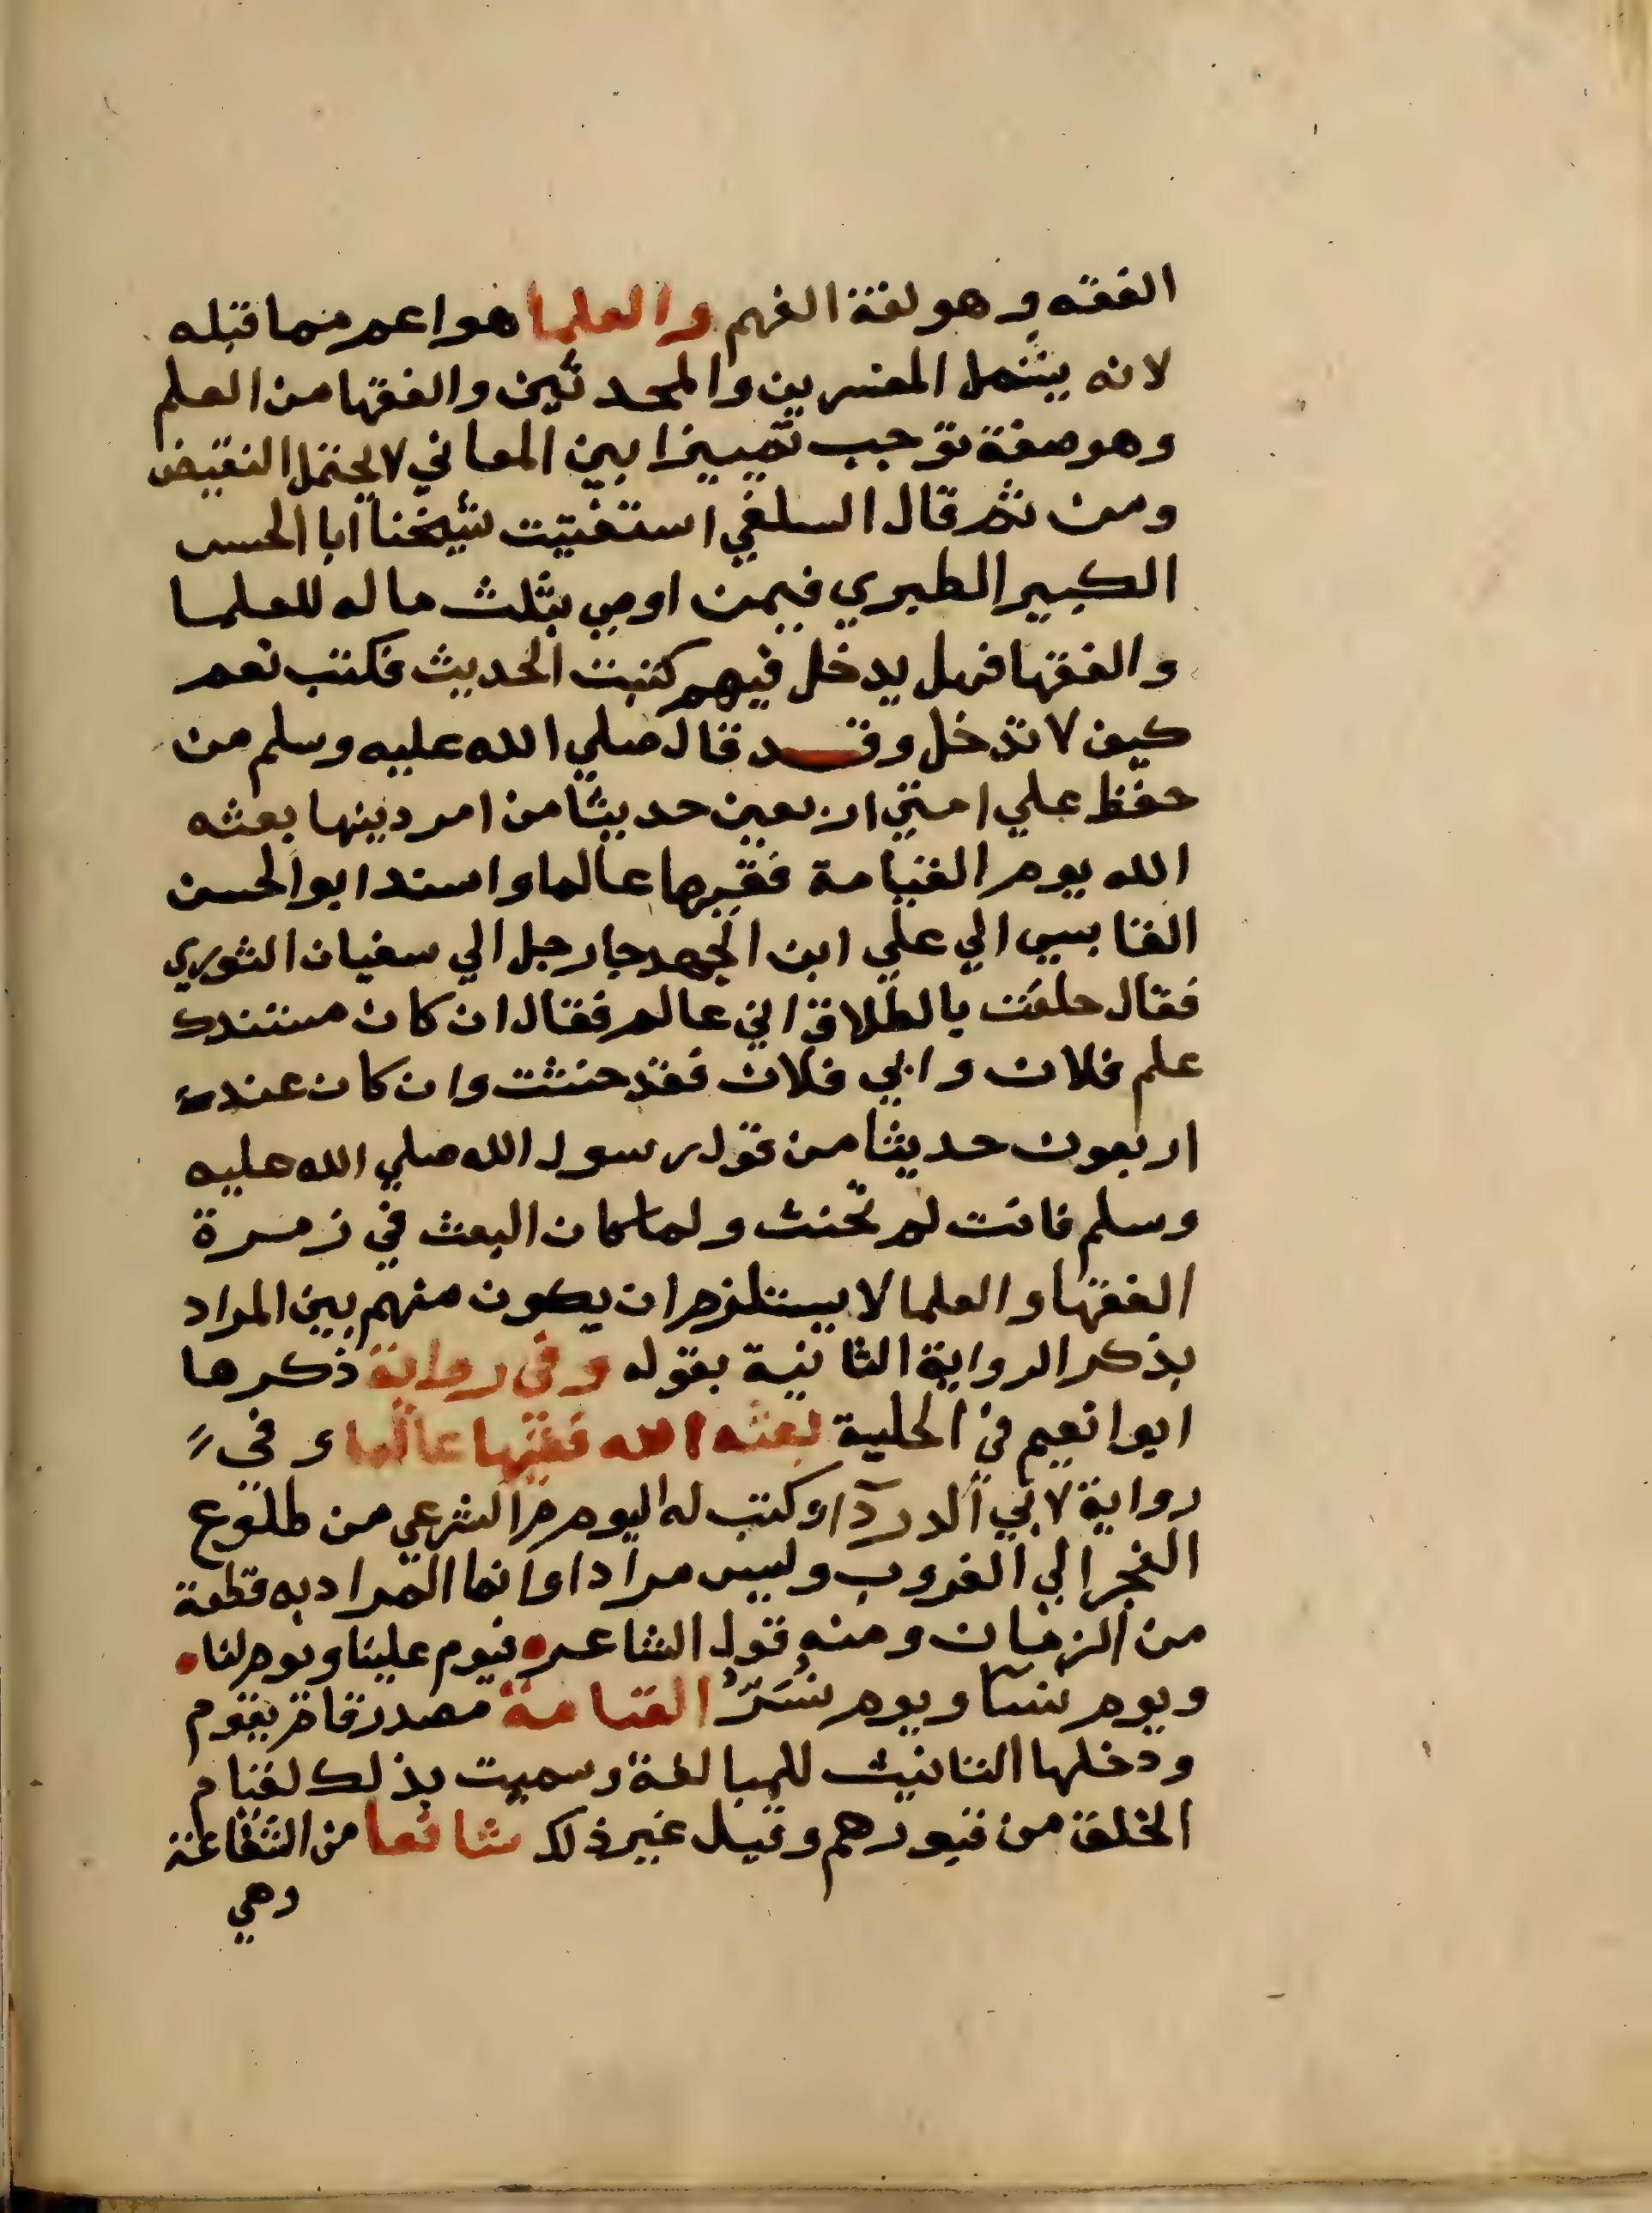 الفقه وهو لغة الفهم والعلما هو اعم مما قبله
لانه يشمل المفسرين والمحدثين والفقها من العلم
وهو صفة توجب تمييزا بين المعاني لا يحتمل النقيض
ومن ثم قال السلفي استفتيت شيخنا ابا الحسن
الكبير الطبري فيمن اوصي بثلث ماله للعلما
والفقها فهل يدخل فيهم كتبت الحديث فكتب نعم
كيف لا تدخل وقد قال صلي الله عليه وسلم من
حفظ علي امتي اربعين حديثا من امر دينها بعثه
الله يوم القيامة فقيها عالما واسند ابو الحسن
القابسي الي علي ابن الجهد جا رجل الي سفيان الثوري
فقال حلفت بالطلاق اني عالم فقال ان كان مستندك
علم فلان وابي فلان فقد حنثت وان كان عندك
اربعون حديثا من قول رسول الله صلي الله عليه
وسلم فانت لم تحنث ولما كان البعث في زمرة
الفقها والعلما لا يستلزم ان يكون منهم بين المراد
بذكر الرواية الثانية بقوله وفي رواية ذكرها
ابوا نعيم في الحلية بعثه الله فقيها عالما وفي
رواية لابي الدردآ وكتب له اليوم م الشرعي من طلوع
الفجر الي الغروب وليس مرادا وانما المراد به قطعة
من الزمان ومنه قول الشاعر فيوم علينا ويوم لنا
ويوم نسآ ويوم نُسَرُّ القيامة مصدر قام يقوم
ودخلها التانيث للمبالغة وسميت بذلك لقيام
الخلق من قبورهم وقيل غير ذلك شافعا من الشفاعة
وهي